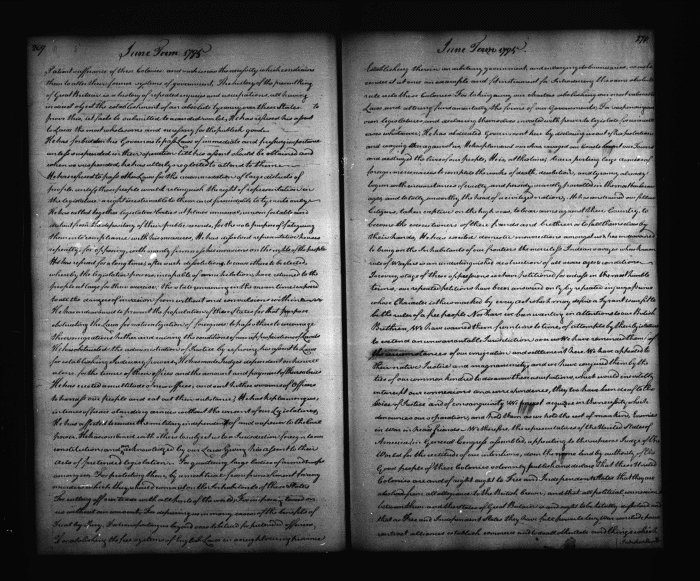 269
June Term 1795
Patient sufferance of these Colonies and such is now the necessity which constrains
them to alter their former systems of government. The history of the present King
of Great Britain is a history of repeated injuries and usurpations, all having
in direct object the establishment of an absolute tyranny over these States. To
prove this, let facts be submitted to a candid world, He has refused his assent
to Laws the most wholesome and necessary for the public good.
He has forbidden his Governors to pass Laws of immediate and pressing importance
unless suspended in their operation till his assent should be obtained and
when so suspended, he has utterly neglected to attend to them.
He has refused to pass other Laws for the accommodation of large districts of
people, unless those people would relinquish the right of representation in
the legislature a right inestimable to them and formidable to tyrants only.
He has called together legislative bodies at places unusual, uncomfortable and
distant from the depository of their public records, for the sole purpose of fatiguing
them into compliance with his measures, He has dissolved representative houses
repeatedly for opposing with manly firmness his invasions on the rights of the people
He has refused for a long time after such dissolutions, to cause others to be elected
whereby the legislative powers incapable of annihilation have returned to the
people at large for their exercise. the state remaining in the mean time exposed
to all the dangers of invasion from without and convulsions within
He has endeavoured to prevent the population of these States for that purpose
obstructing the Laws for naturalization of foreigners to pass others to encourage
their migrations hither and raising the conditions of new appropriations of Lands
He has obstructed the administration of Justice by refusing his assent to Laws
for establishing Judiciary powers, He has made Judges dependent on his will
alone for the tenure of their offices and the amount and payment of their salaries
He has erected a multitude of new offices, and sent hither swarms of Officers
to harrass our people and eat out their substance; He has kept among us,
in times of peace standing armies without the consent of our Legislatures,
He has affected to render the military independent of and superior to the Civil
power. He has combined with others to subject us to a Jurisdiction foreign to our
constitution and unacknowledged by our Laws Giving his assent to their
acts of pretended legislation. For quartering large bodies of armed troops
among us, For protecting them, by a mock trial from punishment for any
murders which they should commit on the Inhabitants of these States
For cutting off our trade with all parts of the world, For imposing taxes on
us without our consent, For depriving us in many cases of the benefits of
Trial by Jury, For transporting us beyond seas to be tried for pretended offences,
For abolishing the free system of English Laws in a neighbouring province
270
June Term 1795.
Establishing therein an arbitrary government, and enlarging its boundaries, so as to
render it at once an example and fit instrument for Introducing the same absolute
rule into these Colonies For taking away our charters abolishing our most valuable
Laws and altering fundamentally the forms of our Governments, For suspending our
own legislatures and declaring themselves invested with power to legislate for us in all
cases whatsoever; He has abdicated Government here by declaring us out of his protection
and waging War against us He has plundered our seas ravaged our Coasts burnt our Towns
and destroyed the lives of our people, He is, at this time, transporting large armies of
foreign mercenaries to compleat the works of death, desolation, and tyranny already
begun with circumstances of cruelty and perfidy scarcely paralleled in the most barbarous
ages, and totally unworthy the head of a civilized nation, He has constrained our fellow
Citizens, taken captive on the high seas, to bear arms against their Country, to
become the executioners of their friends and brethren or to fall themselves by
their hands, He has excited domestic insurrections amongst us & has endeavoured
to bring on the Inhabitants of our frontiers the merciless Indian savages whose known
rule of Warfare is an undistinguished destruction of all ages sexes & conditions.
In every stage of these oppressions we have petitioned for redress in the most humble
terms, our repeated petitions have been answered only by repeated injury. a prince
whose Character is thus marked by every act which may define a Tyrant is unfit to
be the ruler of a free people. Nor have we been wanting in attentions to our British
Brethren, We have warned them from time to time, of attempts by their legislature
to extend an unwarrantable Jurisdiction over us We have reminded them of
the circumstances of our emigration and settlement here. We have appealed to
their native Justice and magnanimity, and we have conjured them by the
ties of our common kindred to disavow these usurpations, which would inevitably
interrupt our connexions and correspondence, they too have been deaf to the
voice of Justice and of consanguinity We must acquiesce in the necessity which
denounces our separation; and hold them as we hold the rest of mankind Enemies
in war in peace friends. We therefore, the representatives of the United States of
America, in General Congress assembled, appealing to the supreme Judge of the
World for the rectitude of our intentions, do in the name and by authority of the
Good people of these Colonies solemnly publish and declare That these United
Colonies are and of right ought to Free and Independent States that they are
absolved from all allegiance to the British Crown, and that all political connexion
between them and the State of Great Britain is and ought to be totally dissolved and
that as Free and Independent States they have full power to levy War conclude peace
contract alliances establish commerce and to do all other acts and things which
Independent